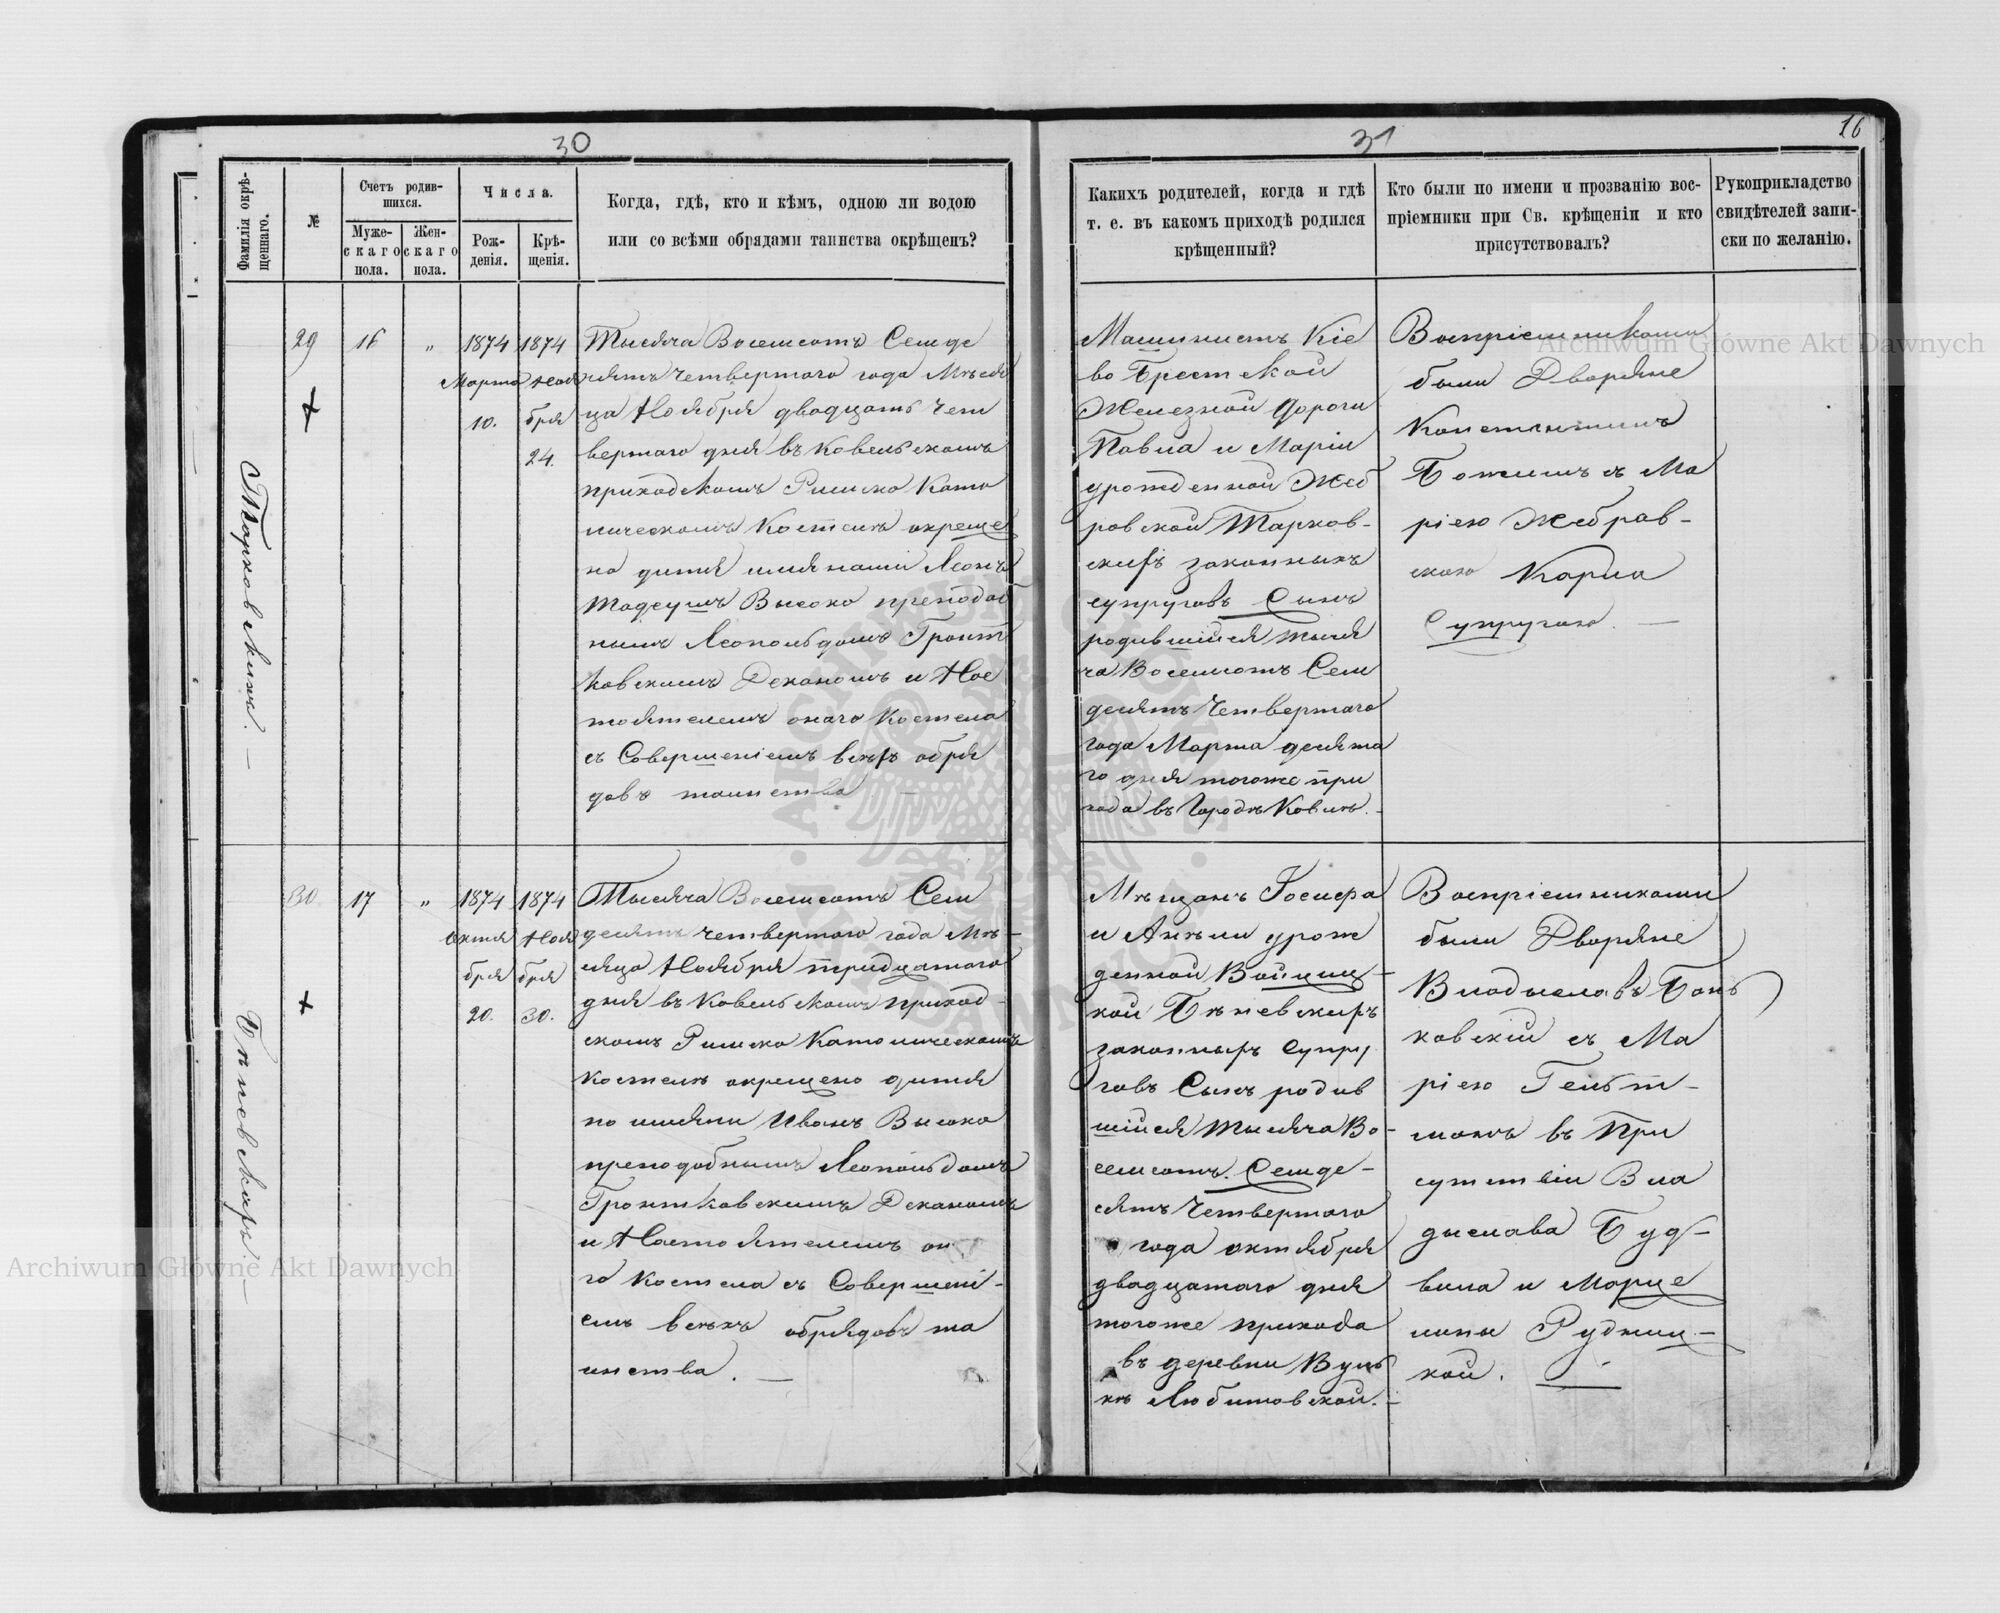 30
Фамилія окрѣ-
щеннаго.
№
Счетъ родив-
шихся.
Муже-
скаго
пола.
Жен-
скаго
пола.
Числа.
Рож-
денія.
Крѣ-
щенія.
Когда, гдѣ, кто и кѣмъ, одною ли водою
или со всѣми обрядами таинства окрѣщенъ?
Тарковскихъ. —
29
16
"
1874
Марта
10.
1874
Ноя
бря
24.
Тысяча Восемсотъ Семде
сятъ четвертаго года Мѣся
ца Ноября двадцать чет
вертаго дня въ Ковельскомъ
приходскомъ Римско Като
лическомъ Костелѣ окреще
но дитя имянами Леонъ
Тадеушъ Высоко преподоб
нымъ Леопольдомъ Гронт
ковскимъ Деканомъ и Нас
тоятелемъ онаго Костела
съ Совершеніемъ всѣхъ обря
довъ таинства —
30
17
"
1874
Октя
бря
20.
1874
Ноя
бря
30.
Тысяча Восемсотъ Сем
десятъ четвертаго года Мѣ-
сяца Ноября тридцатаго
дня въ Ковельскомъ приход-
скомъ Римско Католическомъ
Костелѣ окрещено дитя
по имяни Иванъ Высоко
преподобнымъ Леопольдомъ
Гронтковскимъ Деканомъ
и Настоятелемъ он
го Костела съ Совершені-
емъ всѣхъ обрядовъ та
инства. —
31
16
Какихъ родителей, когда и гдѣ
т. е. въ какомъ приходѣ родился
крѣщенный?
Кто были по имени и прозванію вос-
пріемники при Св. крѣщеніи и кто
присутствовалъ?
Рукоприкладство
свидѣтелей запи-
ски по желанію.
Машинистъ Кіе
во Брестской
Железной Дороги
Павла и Маріи
урожденной Жеб
ровской Тарков-
скихъ законныхъ
супруговъ Сынъ
родившійся тыся
ча Восемсотъ Сем
десятъ Четвертаго
года Марта десята
го дня тогоже при
хода въ Городѣ Ковлѣ. -
Воспріемниками
были Дворяне
Константинъ
съ Ма
ріею Жебров-
скою Карла
Супругою. —
Мѣщанъ Іосифа
и Анѣли урож
денной
кой Бѣневскихъ
законныхъ Супру
говъ Сынъ родив
шійся тысяча Во-
семсотъ Семде-
сятъ Четвертаго
года октября
двадцатаго дня
тогоже прихода
въ деревни Вуль
кѣ Любитовской. -
Воспріемниками
были Дворяне
Владыславъ Бонь
ковскій съ Ма
ріею Гельт-
манъ въ При
сутствіи Вла
дыслава Буд-
вила и Марце
лины Рудниц-
кой. —
Archiwum Główne Akt Dawnych
Archiwum Główne Akt Dawnych